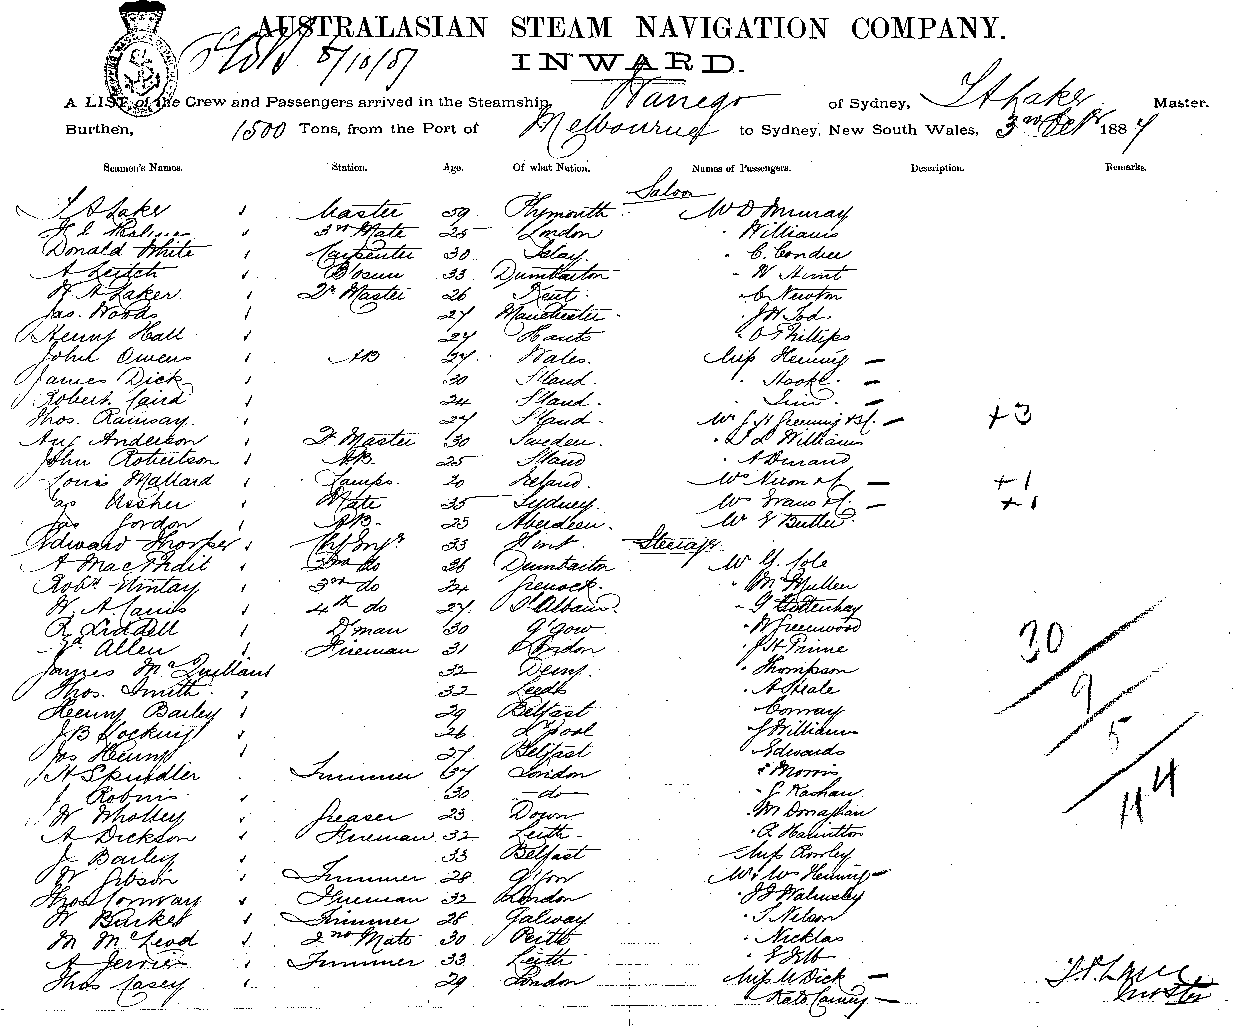 AUSTRALASIAN STEAM NAVIGATION COMPANY.
INWARD.
A LIST of the Crew and Passengers arrived in the Steamship Warrego of Sydney, Master.
Burthen, 1500 Tons, from the Port of Melbourne to Sydney, New South Wales, 3rd Sept 1887
Seamen's Names. Station. Age. Of what Nation. Names of Passengers. Description. Remarks.
Saloon
Master 59 Plymouth Mr D Murray
3rd Mate 25 London Williams
Donald White Carpenter 30 Islay C. Condie
A Leitch Bosun 33 Dumbarton W Hunt
Qr Master 26 Kent C Newton
Jas. Woods 27 Manchester J W Tod
Henry Hall 27 Hants O Phillips
John Owens AB 27 Wales. Miss Henning —
James Dick 30 S'land. Hooke —
Robert Caird 24 S'land. —
Thos. Ramsay. 27 S'land. —  +3
Aug Anderson Qr Master 30 Sweden. Williams
John Robertson AB 25 S'land A Durand
Louis Mallard Lamps. 20 Ireland. Mrs Nixon & C. — +1
Jas Ussher Mate 35 Sydney Mrs Evans & C. — +1
Jas Gordon AB. 23 Aberdeen. Mr Butler
Edward Thorper Chf Engr 33 Steerage
A MacPhail 2nd do 36 Dumbarton Mr G. Cole
Robt Wintay 3rd do 34 Greenock. McMullen
4th do 27 St Albans.
R Liddell D'man 30 G'gow W Greenwood 30
Allen Fireman 31 London J H Prime
James McQuillans 32 Derry. Thompson
Thos. Smith. 32 Leeds A Heale 9
Henry Bailey 29 Belfast Conway
J B Hocking 26 L'pool J Williams 5
Jas Henry 27 Belfast Edwards
H Spindler Trimmer 27 London Morris
J Robins 30 —do— 44
W Wholley Greaser 23 Down M Donaghan
A Dickson Fireman 32 Leith R Hamilton
J Bailey 33 Belfast Miss Rowley
W Gibson Trimmer 28 G'gow Mr & Mrs Henning —
Thos Conway Fireman 32 London Walmsley
W Barker Trimmer 28 Galway T Nelson
M McLeod 2nd Mate 30 Perth Nicklas
A Jervis Trimmer 33 Leith
Thos Casey 29 London Miss M Dick —
Kate Carney —
Master